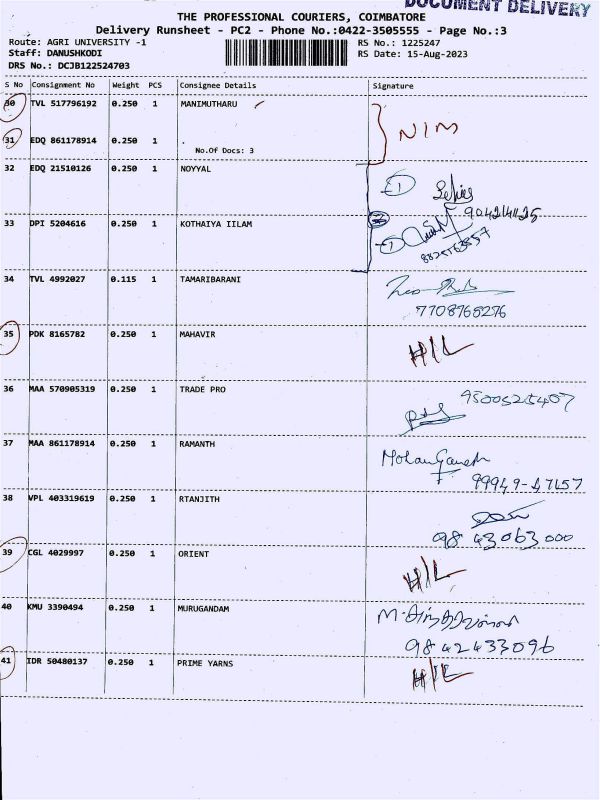 DOCUMENT DELIVERY
THE PROFESSIONAL COURIERS, COIMBATORE
Delivery Runsheet - PC2 - Phone No.:0422-3505555 - Page No.:3
Route: AGRI UNIVERSITY -1 RS No.: 1225247
Staff: DANUSHKODI RS Date: 15-Aug-2023
DRS No.: DCJB122524703
S No Consignment No Weight PCS Consignee Details Signature
30 TVL 517796192 0.250 1 MANIMUTHARU
NIM
31 EDQ 861178914 0.250 1 .
No.Of Docs: 3
32 EDQ 21510126 0.250 1 NOYYAL
1
9042141125
33 DPI 5204616 0.250 1 KOTHAIYA IILAM
1
34 TVL 4992027 0.115 1 TAMARIBARANI
7708765276
35 PDK 8165782 0.250 1 MAHAVIR
H/L
36 MAA 570905319 0.250 1 TRADE PRO 9500525407
37 MAA 861178914 0.250 1 RAMANTH
Mohan Ganesh
99949-47157
38 VPL 403319619 0.250 1 RTANJITH
98 43063 000
39 CGL 4029997 0.250 1 ORIENT
H/L
40 KMU 3390494 0.250 1 MURUGANDAM
9842433096
41 IDR 50480137 0.250 1 PRIME YARNS
H/L